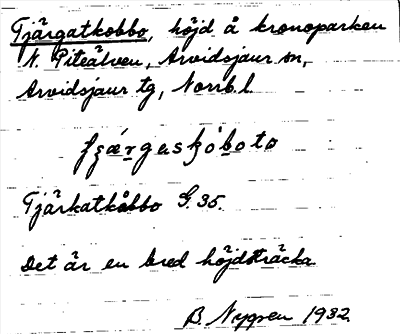 Tjärgatkobbo, höjd å kronoparken
N. Piteälven, Arvidsjaur sn,
Arvidsjaur tg, Norrb. l.
Tjärkatkåbbo G. 35.
Det är en bred höjdsträcka
B. Nygren 1932